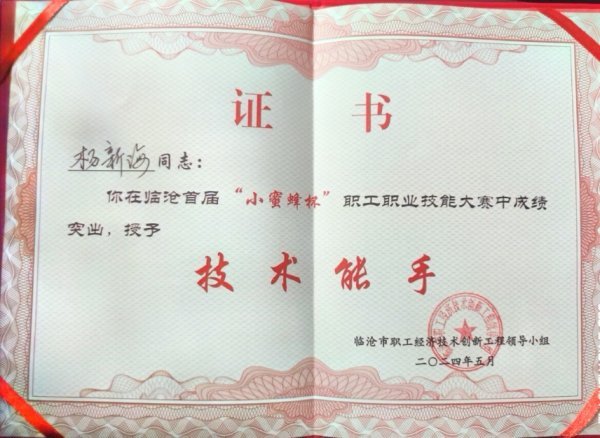 证书
杨新海同志：
你在临沧首届“小蜜蜂杯”职工职业技能大赛中成绩
突出，授予
技术能手
临沧市职工经济技术创新工程领导小组
二〇二四年五月